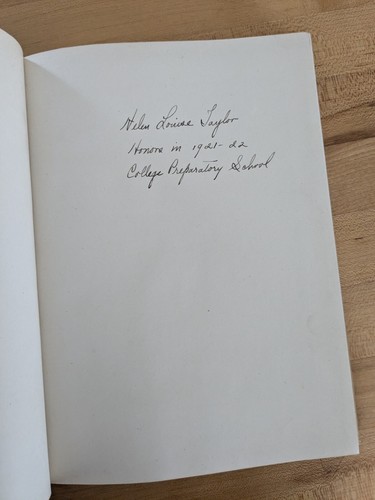 Helen Louise Taylor
Honors in 1921-22
College Preparatory School